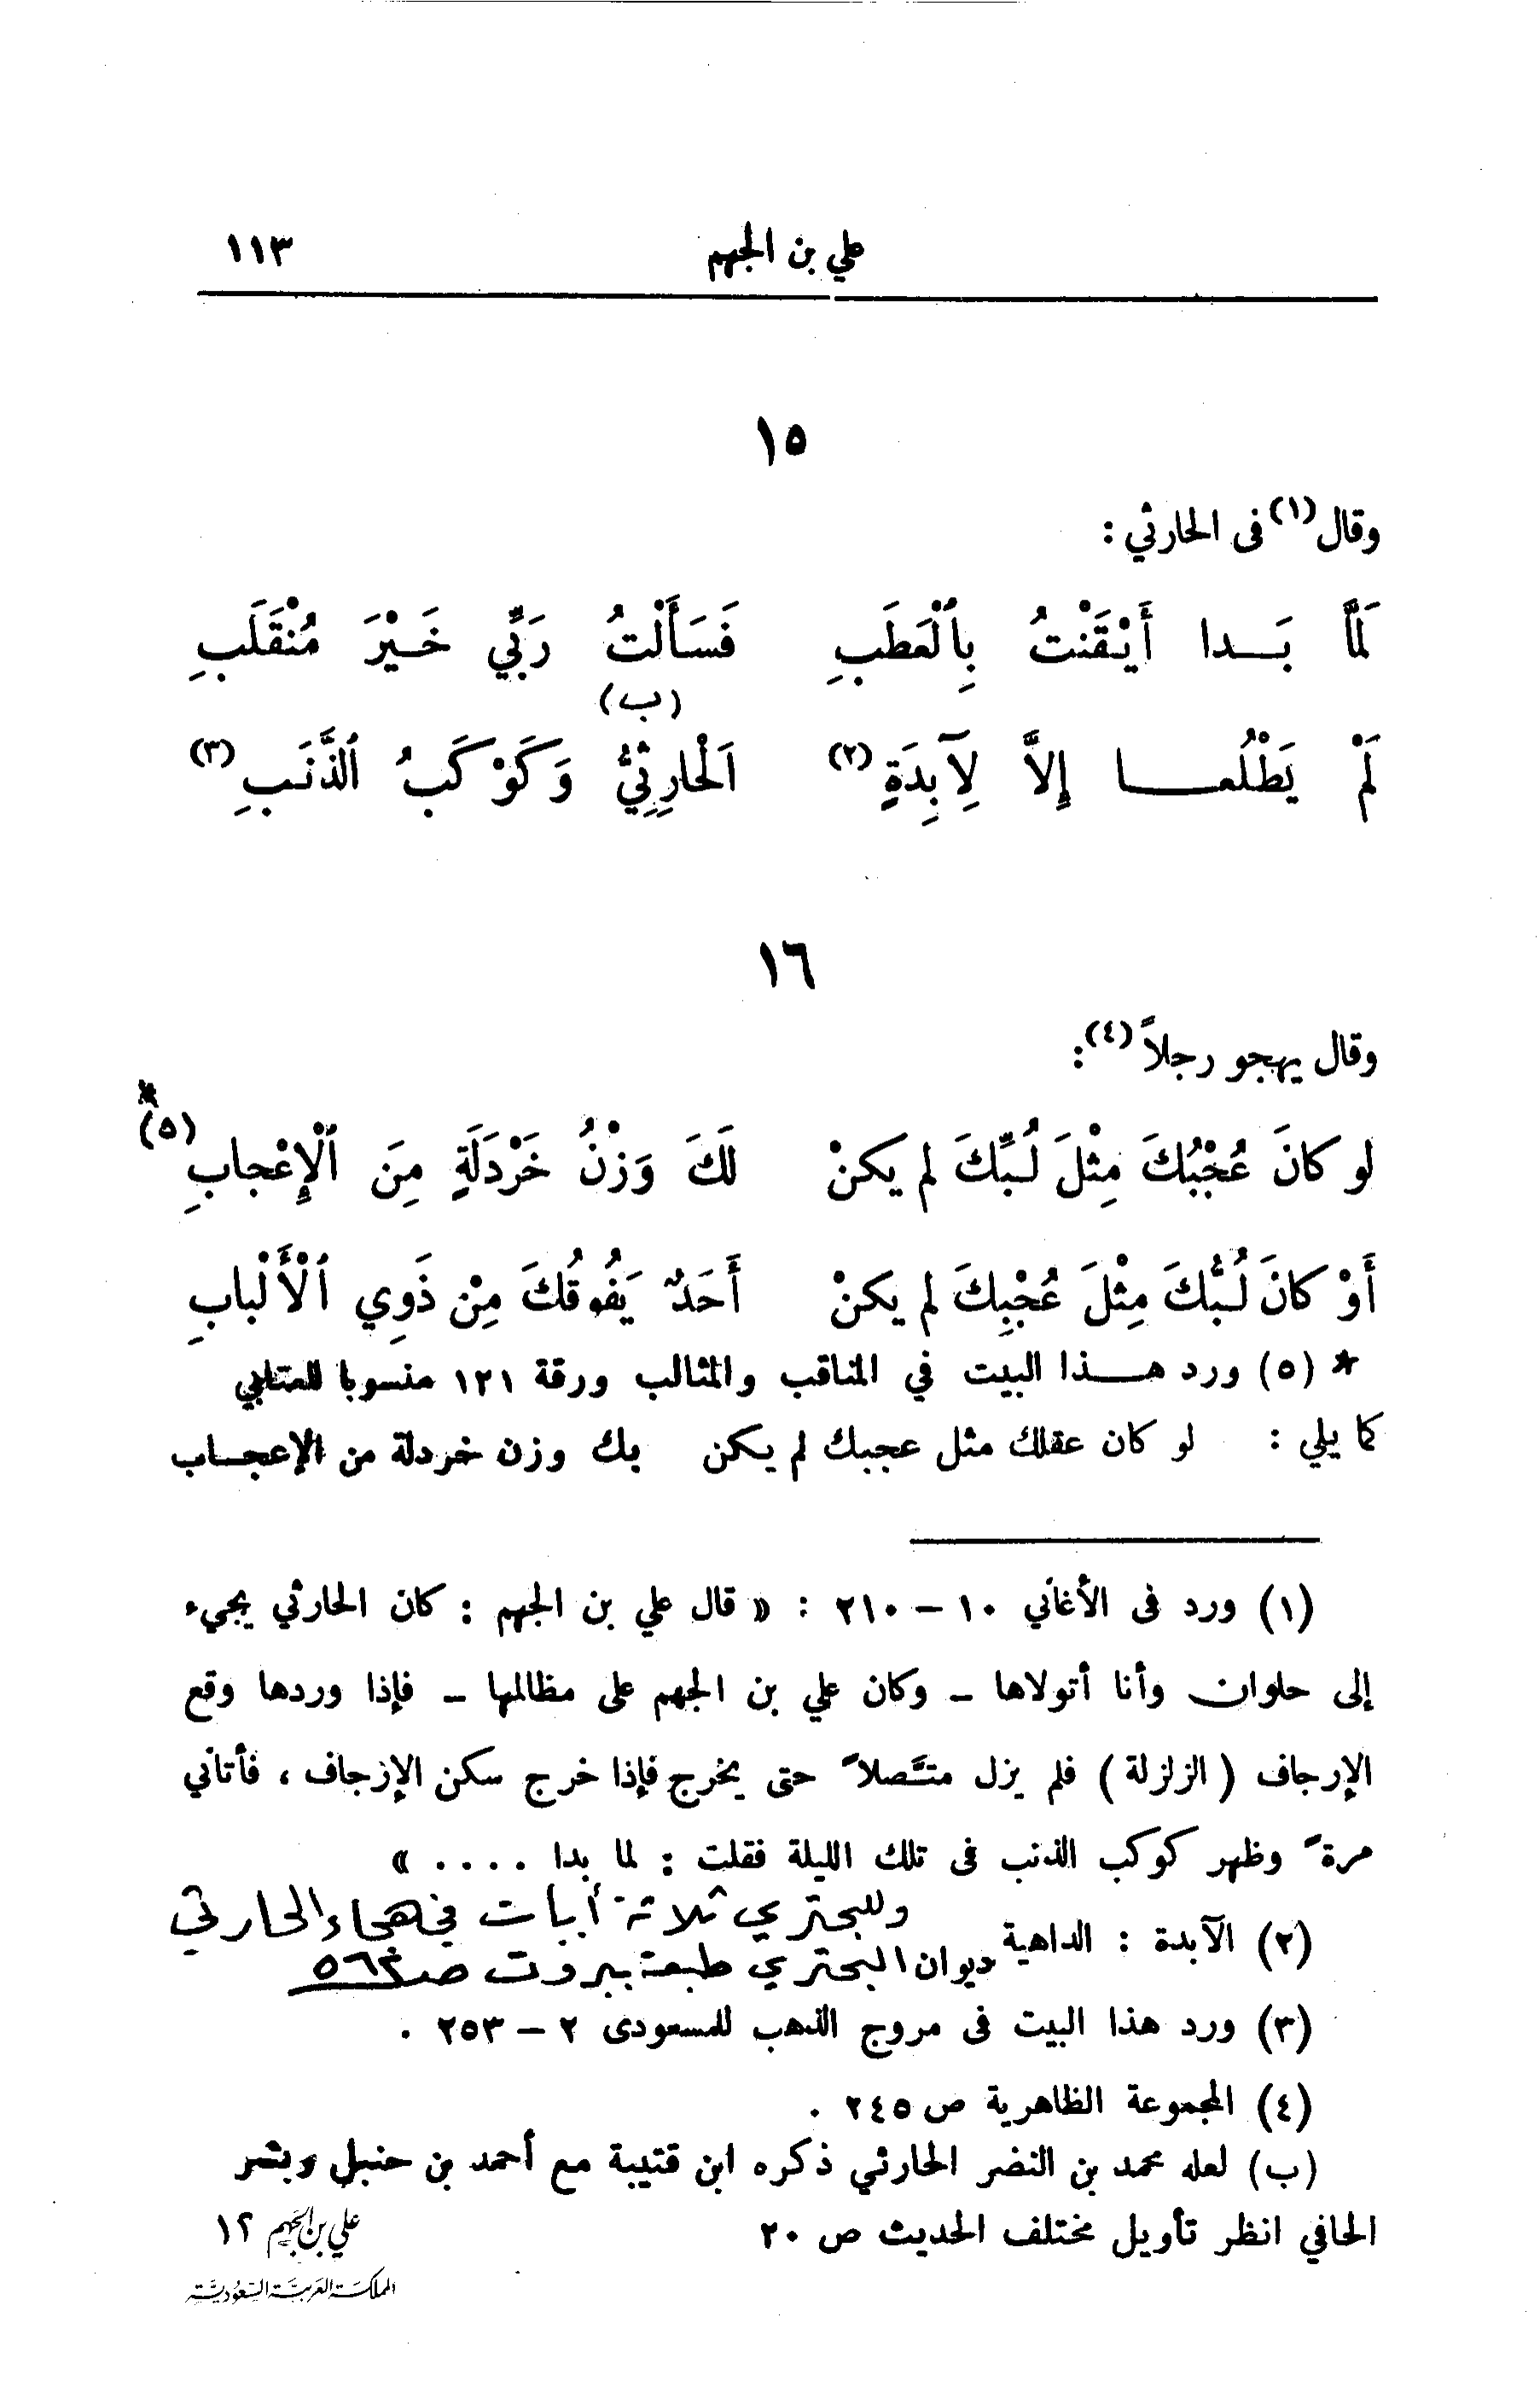 علي بن الجهم ١١٣
١٥
وقال (١) فى الحارثي :
لَمَّا بَــدا أَيْقَنْتُ بِٱلْعَطَبِ فَسَأَلْتُ رَبِّي خَيْرَ مُنْقَلَبِ
لَمْ يَطْلُعــــا إِلاَّ لِآبِدَةٍ (٢) اَلْحارِثِيُّ (ب) وَكَوْكَبُ ٱلذَّنَبِ (٣)
١٦
وقال يهجو رجلاً (٤) :
لو كانَ عُجْبُكَ مِثْلَ لُبِّكَ لم يكنْ لَكَ وَزْنُ خَرْدَلَةٍ مِنَ ٱلْإِعْجابِ (٥) *
أَوْ كانَ لُبُّكَ مِثْلَ عُجْبِكَ لم يكنْ أَحَدٌ يَفُوقُكَ مِنْ ذَوِي ٱلْأَلْبابِ
* (٥) ورد هــــذا البيت في المناقب والمثالب ورقة ١٢١ منسوبا للعتابي
كما يلي : لو كان عقلك مثل عجبك لم يكن بك وزن خردلة من الإعجــاب
(١) ورد فى الأغاني ١٠ – ٢١٠ : « قال علي بن الجهم : كان الحارثي يجيء
إلى حلوان وأنا أتولاها – وكان علي بن الجهم على مظالمها – فإذا وردها وقع
الإرجاف ( الزلزلة ) فلم يزل متَّصلاً حتى يخرج فإذا خرج سكن الإرجاف ، فأتاني
مرةً وظهر كوكب الذنب فى تلك الليلة فقلت : لما بدا .... »
(٢) الآبدة : الداهية وللبحتري ثلاثة أبيات في هجاء الحارثي
ديوان البحتري طبعة بيروت
(٣) ورد هذا البيت فى مروج الذهب للمسعودى ٢ – ٢٥٣ .
(٤) المجموعة الظاهرية ص ٢٤٥ .
(ب) لعله محمد بن النضر الحارثي ذكره ابن قتيبة مع أحمد بن حنبل وبشر
الحافي انظر تأويل مختلف الحديث ص ٢٠
علي بن الجهم ١٢
المملكة العربيَّة السَّعُوديَّة